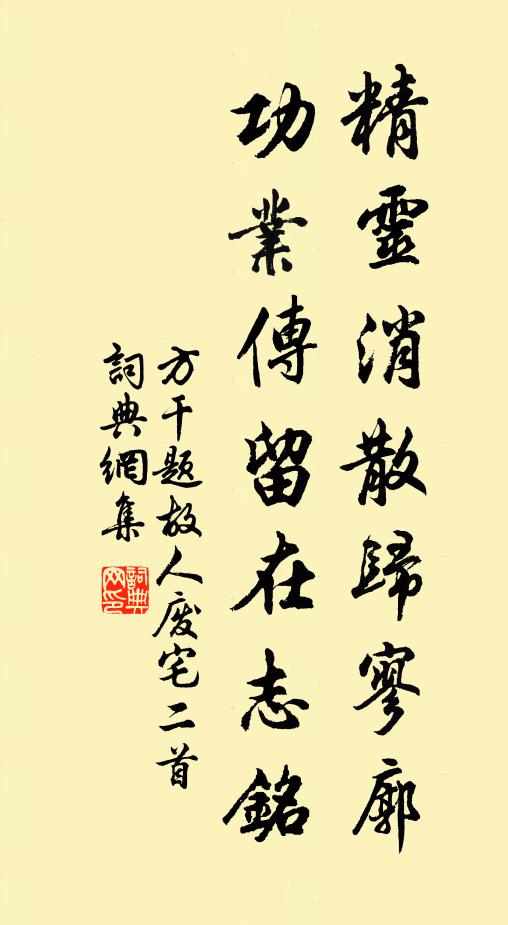 精靈消散歸寥廓
功業傳留在志銘
方干題故人廢宅二首
詞典網集
詞典網印